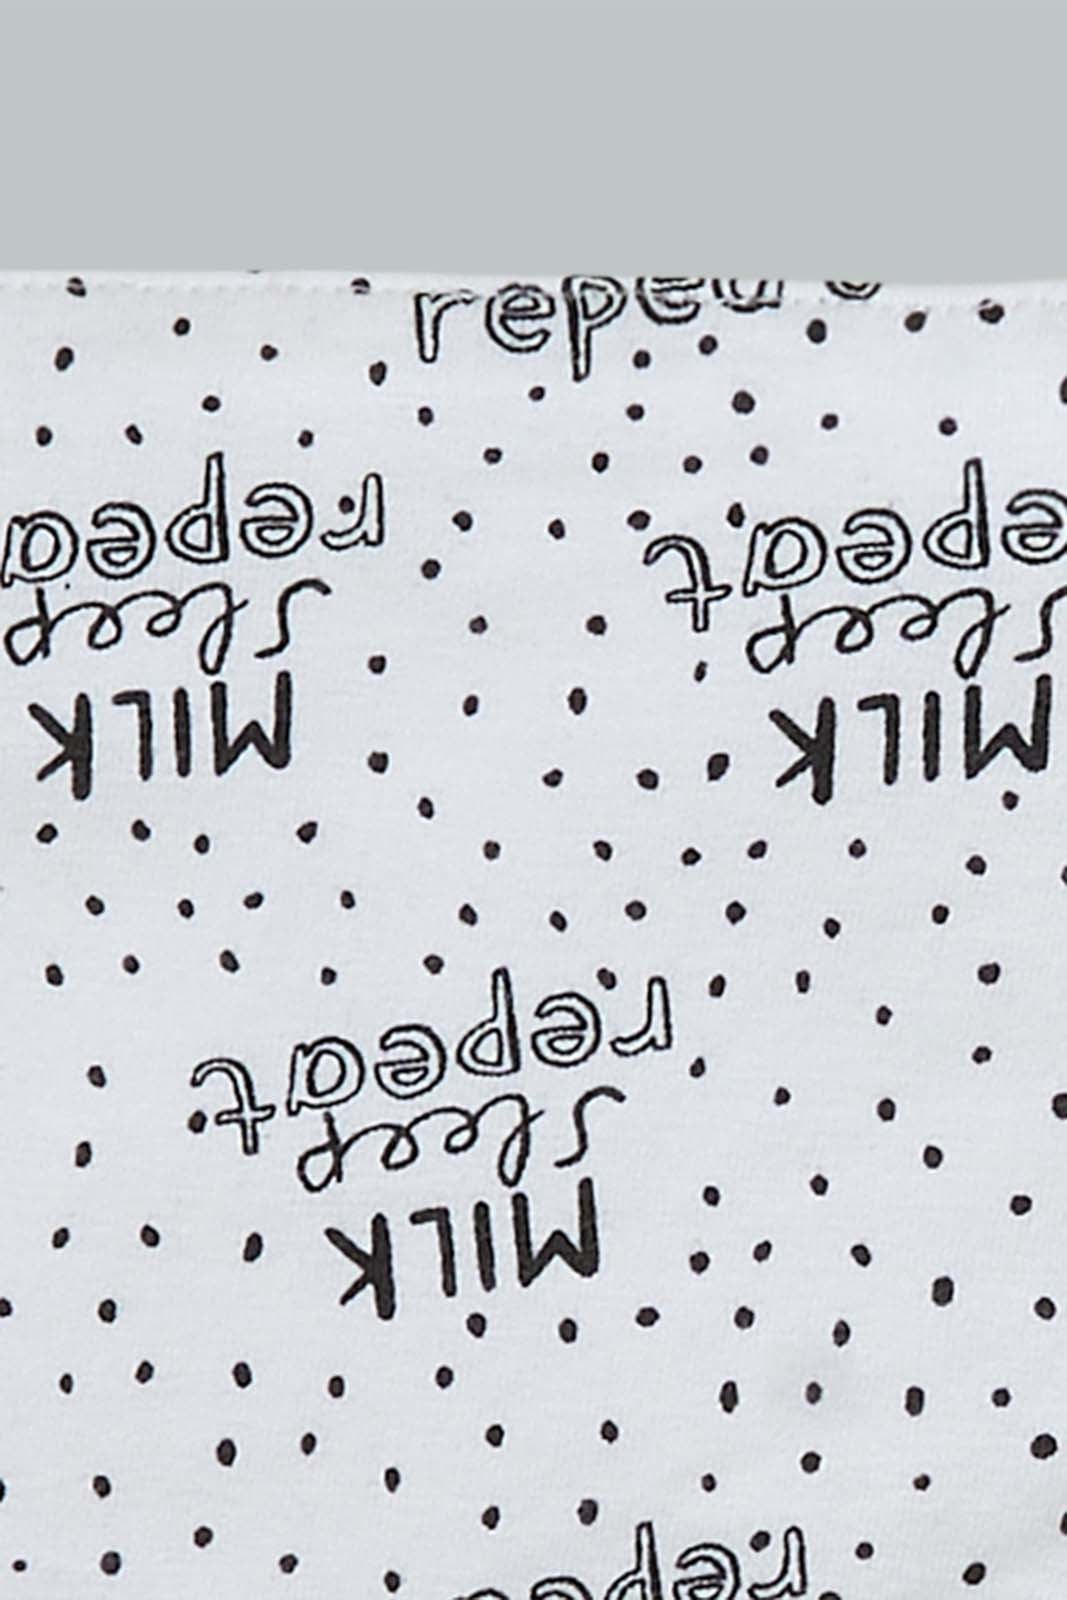 repea
MILK
sleep
repea
MILK
sleep
epeat
MILK
sleep
repeat
rep